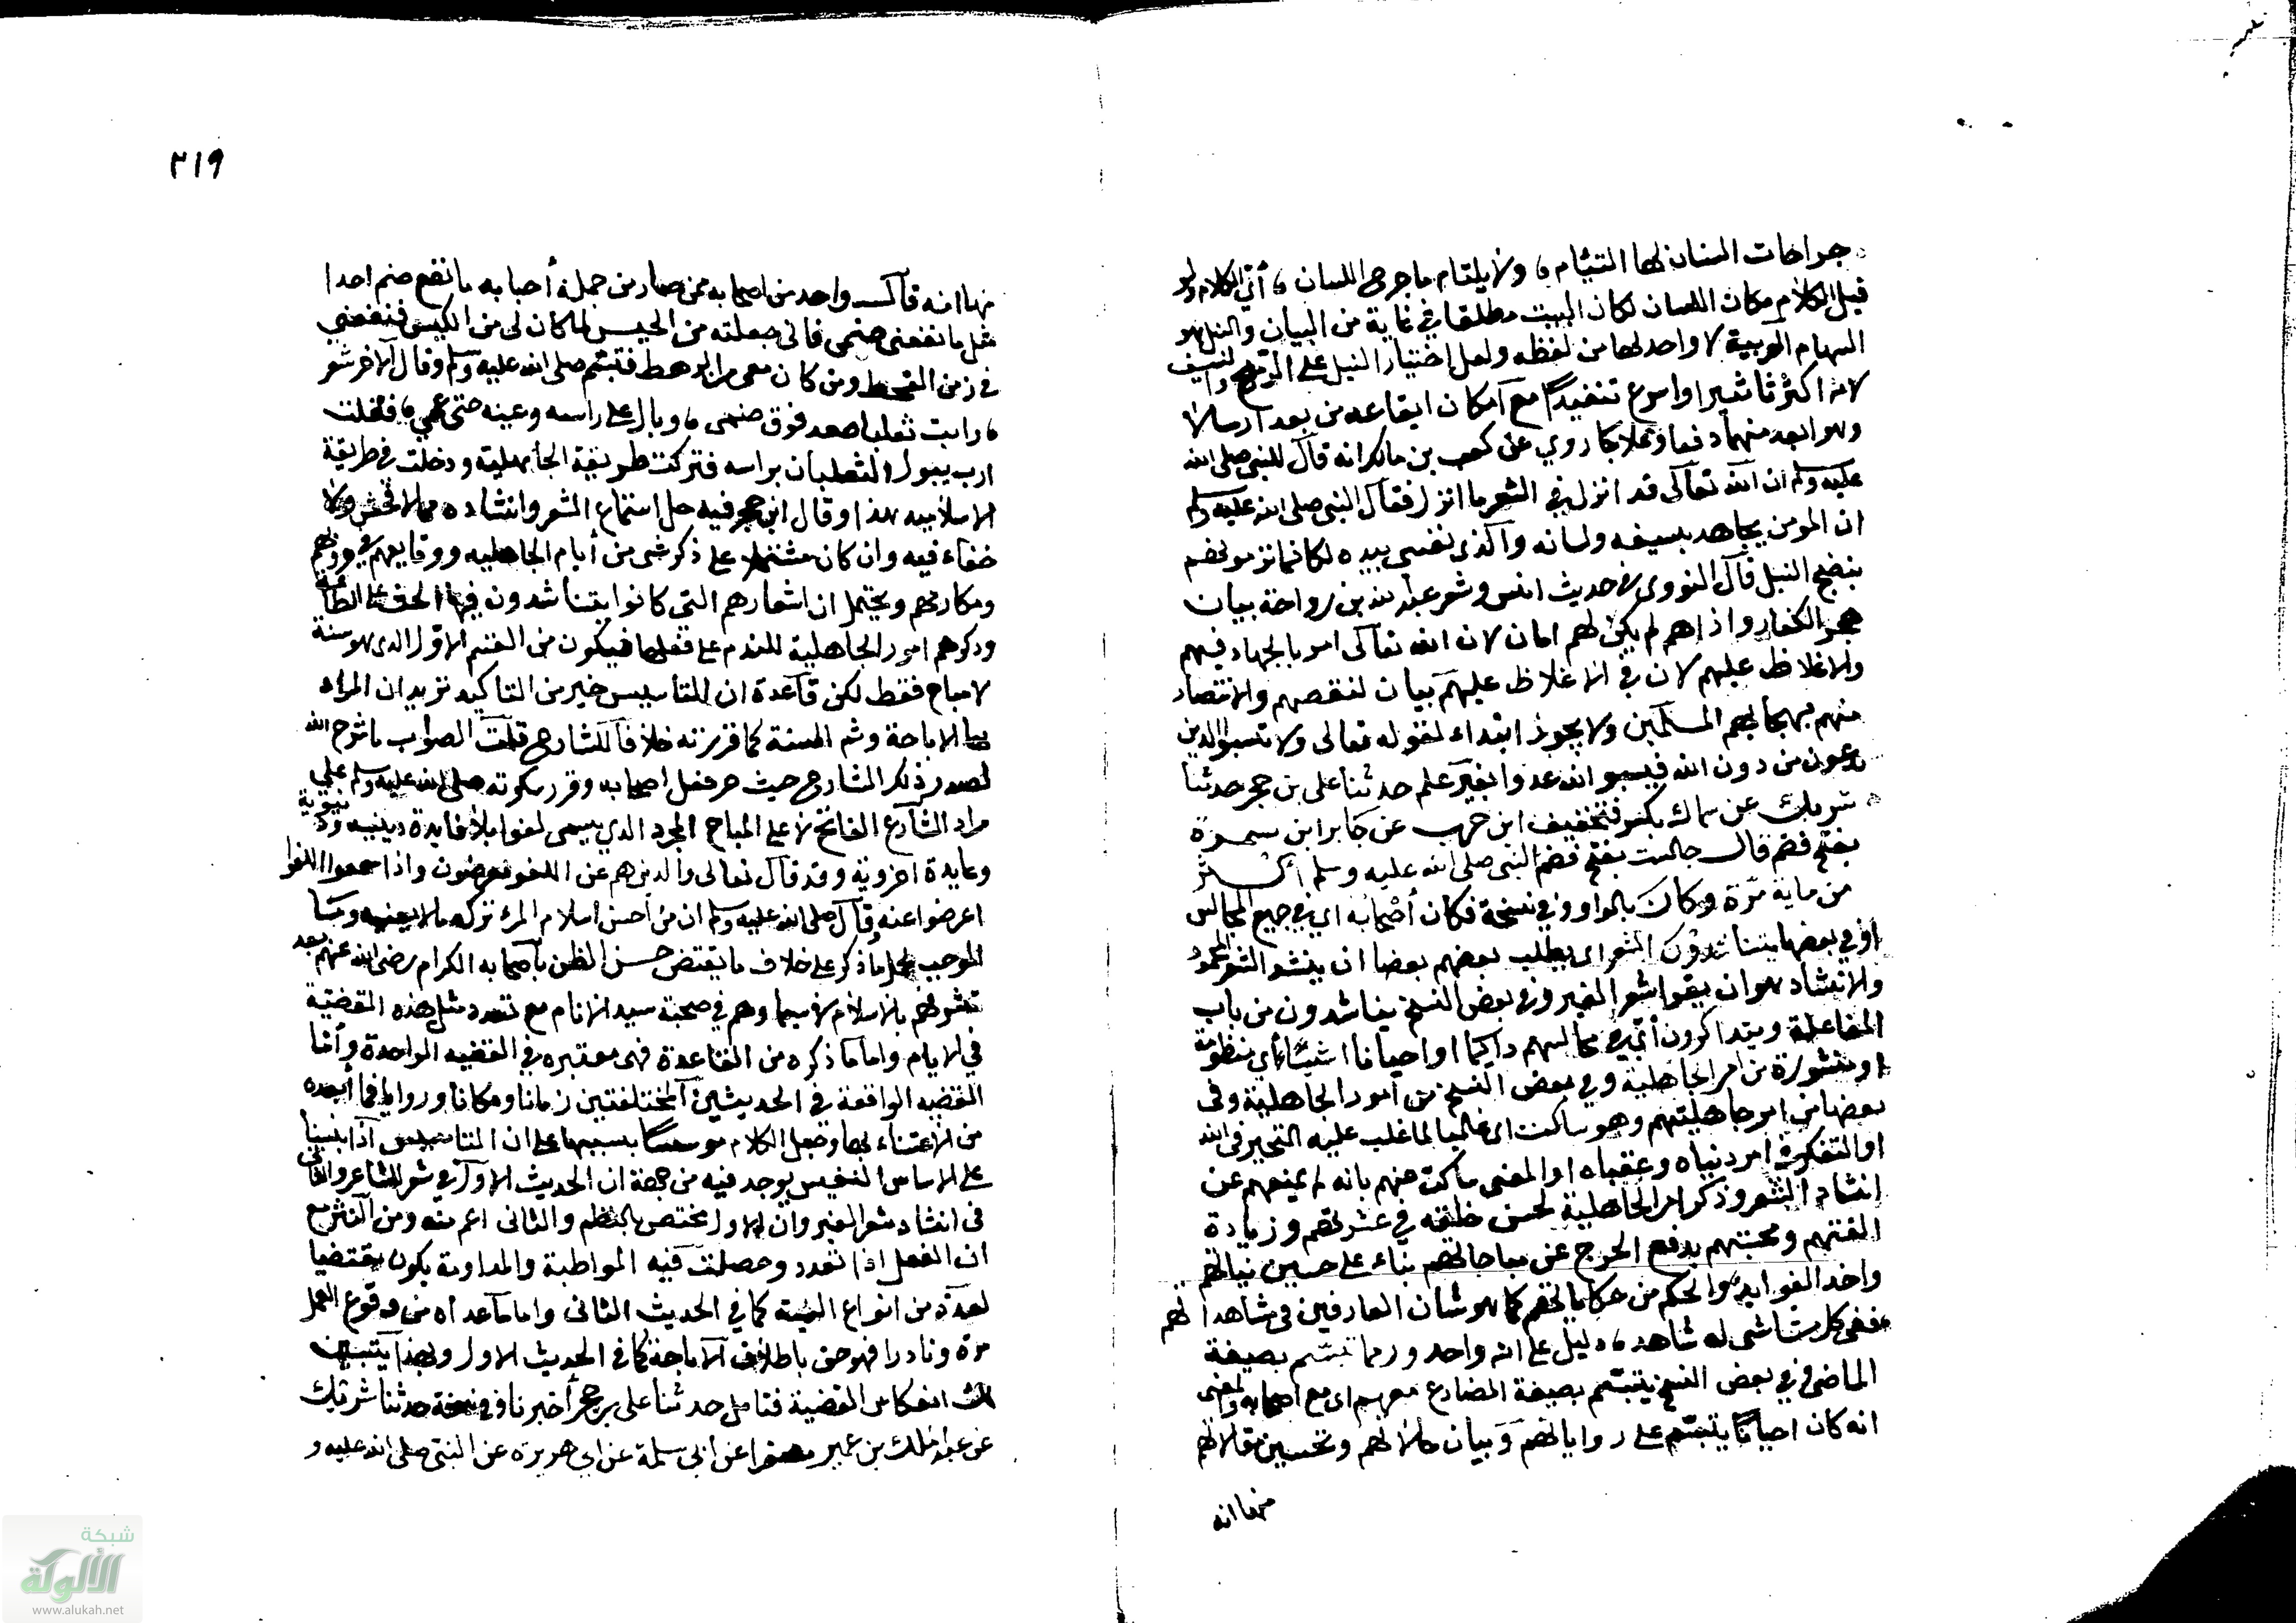 جراحات السنان لها التيئام ۵ ولا يلتام ما جرح اللسان ۵ أي الكلام ولو
قيل الكلام مكان اللسان لكان البيت مطلقا في غاية من البيان والنبل هو
السهام العربية لا واحد لها من لفظه ولعل اختيار النبل على الرمح والسيف
لانه اكثر تاثيرا واسرع تنفيذا مع امكان ايقاعه من بعد ارسالا
وهو ابعد منهما دفعا وعلاجا روي عن كعب بن مالك انه قال للنبي صلى الله
عليه وسلم ان الله تعالى قد انزل في الشعر ما انزل فقال النبي صلى الله عليه وسلم
ان المومن يجاهد بسيفه ولسانه والذي نفسي بيده لكانما ترمونهم
بنضح النبل قال النووي في حديث انس وشعر عبد الله بن رواحة بيان
هجو الكفار واذاهم لم يكن لهم امان لان الله تعالى امر بالجهاد فيهم
والاغلاظ عليهم لان في الاغلاظ عليهم بيان لنقصهم والانتصار
منهم بهجائهم المسلمين ولا يجوز ابتداء لقوله تعالى ولا تسبوا الذين
يدعون من دون الله فيسبوا الله عدوا بغير علم حدثنا علي بن حجر حدثنا
شريك عن سماك بكسر فتخفيف ابن حرب عن جابر ابن سمرة
بفتح فضم قال جالست بفتح فضم النبي صلى الله عليه وسلم اكثر
من ماية مرة وكان بالواو وفي نسخة فكان أصحابه اي في جميع المجالس
او في بعضها يتناشدون الشعر اي يطلب بعضهم بعضا ان ينشد الشعر المحمود
والانشاد هو ان يقرا شعر الغير وفي بعض النسخ يناشدون من باب
المفاعلة ويتذاكرون أي في مجالسهم دائما او احيانا اشياء أي منظومة
او منثورة من امر الجاهلية وفي بعض النسخ من امور الجاهلية وفي
بعضها من امر جاهليتهم وهو ساكت اي غالبا لما غلب عليه التحير في الله
او التفكر في امر دنياه وعقباه او المعنى ساكت عنهم بانه لم يمنعهم عن
انشاد الشعر وذكر امر الجاهلية لحسن خلقه في عشرتهم وزيادة
الفتهم ومحبتهم بدفع الحرج عن مباحاتهم بناء على حسين نياتهم
واخذ الفوايد والحكم من حكاياتهم كما هو شان العارفين في مشاهداتهم
ففي كل شاشى له شاهد ۵ دليل على انه واحد وربما تبسم بصيغة
الماضي وفي بعض النسخ يتبسم بصيغة المضارع معهم اي مع اصحابه والمعنى
انه كان احيانا يتبسم على رواياتهم وبيان حالاتهم وتحسين مقالاتهم
منها انه
٢١٩
منها انه قال واحد من اصحابه ممن صار من جملة أحبابه ما نفع صنم احدا
مثل ما نفعني صنمي فاني جعلته من الحيس لما كان لي من الكيس فنفعني
في زمن القحط ومن كان معي من الرهط فتبسم صلى الله عليه وسلم وقال الآخر شعر
۵ رايت ثعلبا صعد فوق صنمي ۵ وبال على راسه وعينه حتى عمي ۵ فقلت
ارب يبول الثعلبان براسه فتركت طريقة الجاهلية ودخلت في طريقة
الاسلامية هذا وقال ابن حجر فيه حل استماع الشعر وانشاده مما لا فحش ولا
خفاء فيه وان كان مشتملا على ذكر شي من أيام الجاهلية ووقايعهم في حروبهم
ومكارمهم ويحتمل ان اشعارهم التي كانوا يتناشدون فيها الحث على الطاعة
وذكرهم امور الجاهلية للندم على فعلها فيكون من القسم الاول الذي هو سنة
لا مباح فقط لكن قاعدة ان التاسيس خير من التاكيد تريد ان المراد
بها الاباحة وثم السنة كما قررته خلافا للشارح قلت الصواب ما شرح الله
لصدر ذلك الشارح حيث حرر فعل اصحابه وقرر سكوته صلى الله عليه وسلم علي
مراد الشارع الفاتح لا على المباح المجرد الذي يسمى لغوا بلا فايدة دينية ودنيوية
وعايدة اخروية وقد قال تعالى والذين هم عن اللغو معرضون واذا سمعوا اللغو
اعرضوا عنه وقال صلى الله عليه وسلم ان من أحسن اسلام المرء تركه ما لا يعنيه وما
الموجب لحمل ما ذكر على خلاف ما يقتضي حسن الظن باصحابه الكرام رضي الله عنهم بعد
تشرفهم بالاسلام لا سيما وهم في صحبة سيد الانام مع تعدد مثل هذه القضية
في الايام واما ما ذكره من القاعدة فهي معتبرة في القضيه الواحدة وأما
القضيه الواقعة في الحديثين المختلفتين زمانا ومكانا ورواية فما أبعده
من الاعتناء بها وجعل الكلام موسسا بسببها على ان التاسيس اذا بنينا
على الاساس النفيس يوجد فيه من جهة ان الحديث الاول في شعر الشاعر والثاني
في انشاد شعر الغير وان الاول مختص بالنظم والثاني اعم منه ومن النثر مع
ان الفعل اذا تعدد وحصلت فيه المواظبة والمداومة يكون مقتضيا
لعده من انواع السنة كما في الحديث الثاني واما ما عداه من وقوع الفعل
مرة ونادرا فهو حق باطلاق الاباحة كما في الحديث الاول وبهذا يتبين
لك انعكاس القضية فتامل حدثنا على بن حجر أخبرنا وفي نسخة حدثنا شريك
عن عبد الملك بن عمير مصغرا عن ابي سلمة عن ابي هريرة عن النبي صلى الله عليه و
شبكة
الألوكة
www.alukah.net